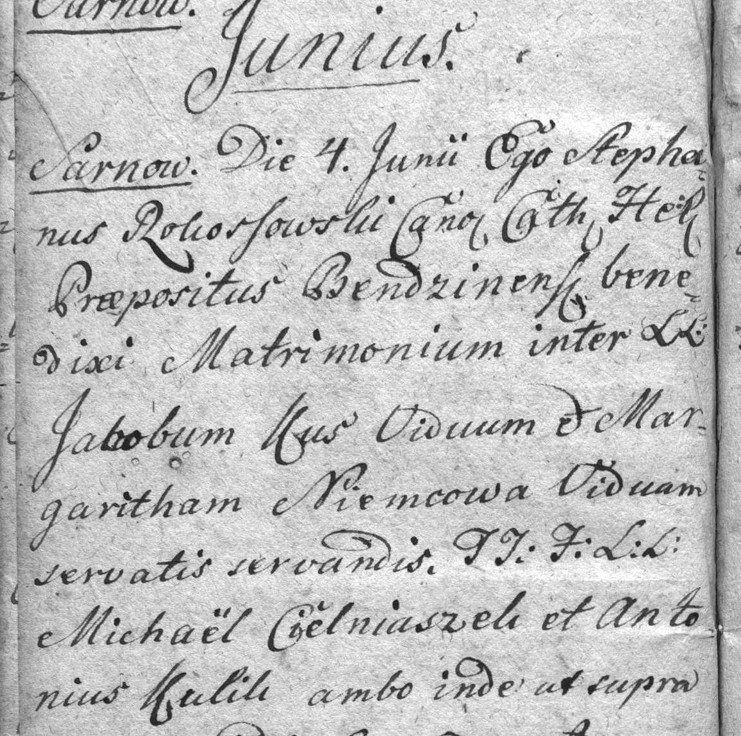 Sarnow.
Junius.
Sarnow. Die 4. Junii Ego Stepha=
nus Rokossowski Cano Cath
Præpositus Bendzinens bene=
dixi Matrimonium inter LL:
Jacobum Kus Viduum et Mar=
garitham Niemcowa Viduam
servatis servandis. TT: F: L: L:
Michaël Cielniaszek et Anto
nius Kulik ambo inde ut supra